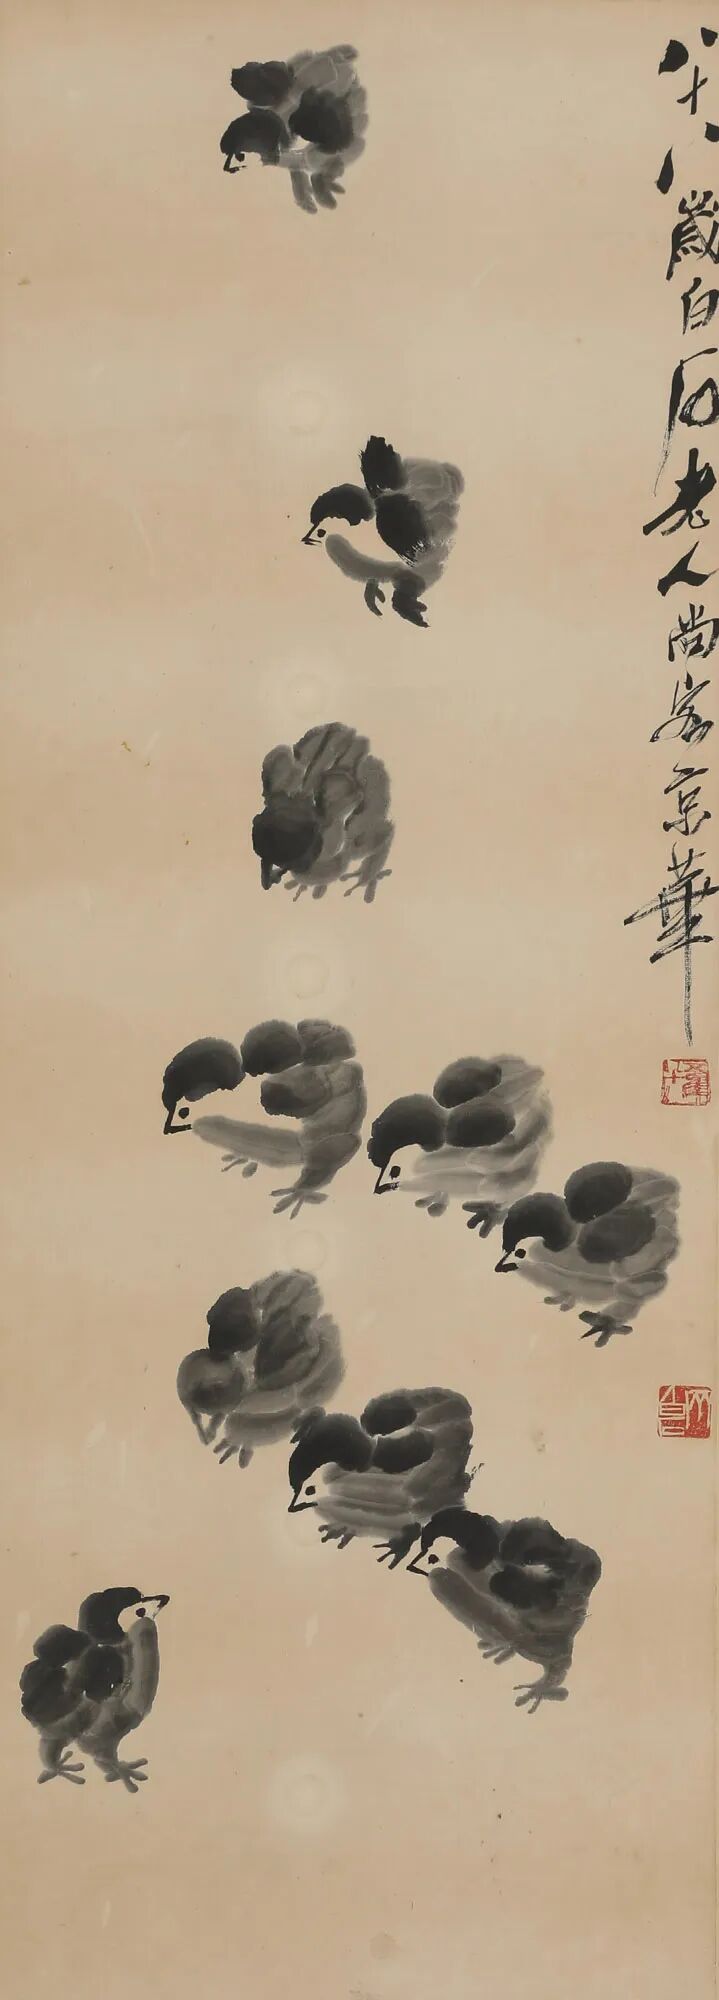 八十八歲白石老人尚客京華